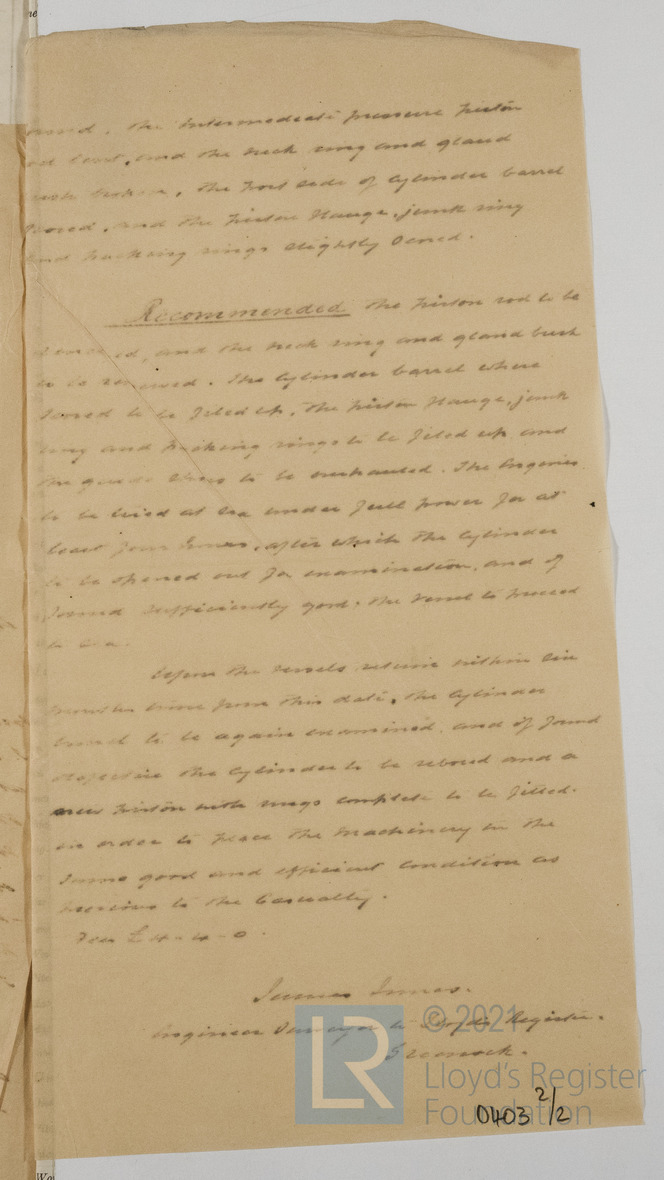 The Intermediate pressure piston
bent, and the neck ring and gland
bush broken. The Port side of Cylinder barrel
scored, and the Piston flange, junk ring
and packing rings slightly scored.
Recommended the Piston rod to be
and the neck ring and gland bush
to be renewed. The Cylinder barrel where
scored to be filed up, the Piston flange, junk
ring and packing rings to be filed up and
the guide shoes to be overhauled. The Engines
to be tried at sea under full power for at
least four hours, after which the Cylinder
to be opened out for examination, and if
found sufficiently good, the vessel to proceed
to sea.
Upon the vessels return within six
months time from this date, the Cylinder
barrel to be again examined, and if found
defective the Cylinder to be rebored and a
new Piston with rings complete to be fitted.
in order to place the Machinery in the
same good and efficient condition as
previous to the Casualty.
Fee £4-4-0
James Innes.
Engineer Surveyor to Lloyd's Register.
Greenock.
© 2021
LR
Lloyd's Register
Foundation
0403 2/2